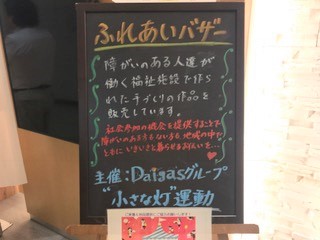 ふれあいバザー
障がいのある人達が
働く福祉施設で作ら
れた手づくりの作品を
販売しています。
社会参加の機会を提供することで
障がいのある方もない方も地域の中で
ともにいきいきと暮らせるお手伝いを…
主催：Daigasグループ
"小さな灯"運動